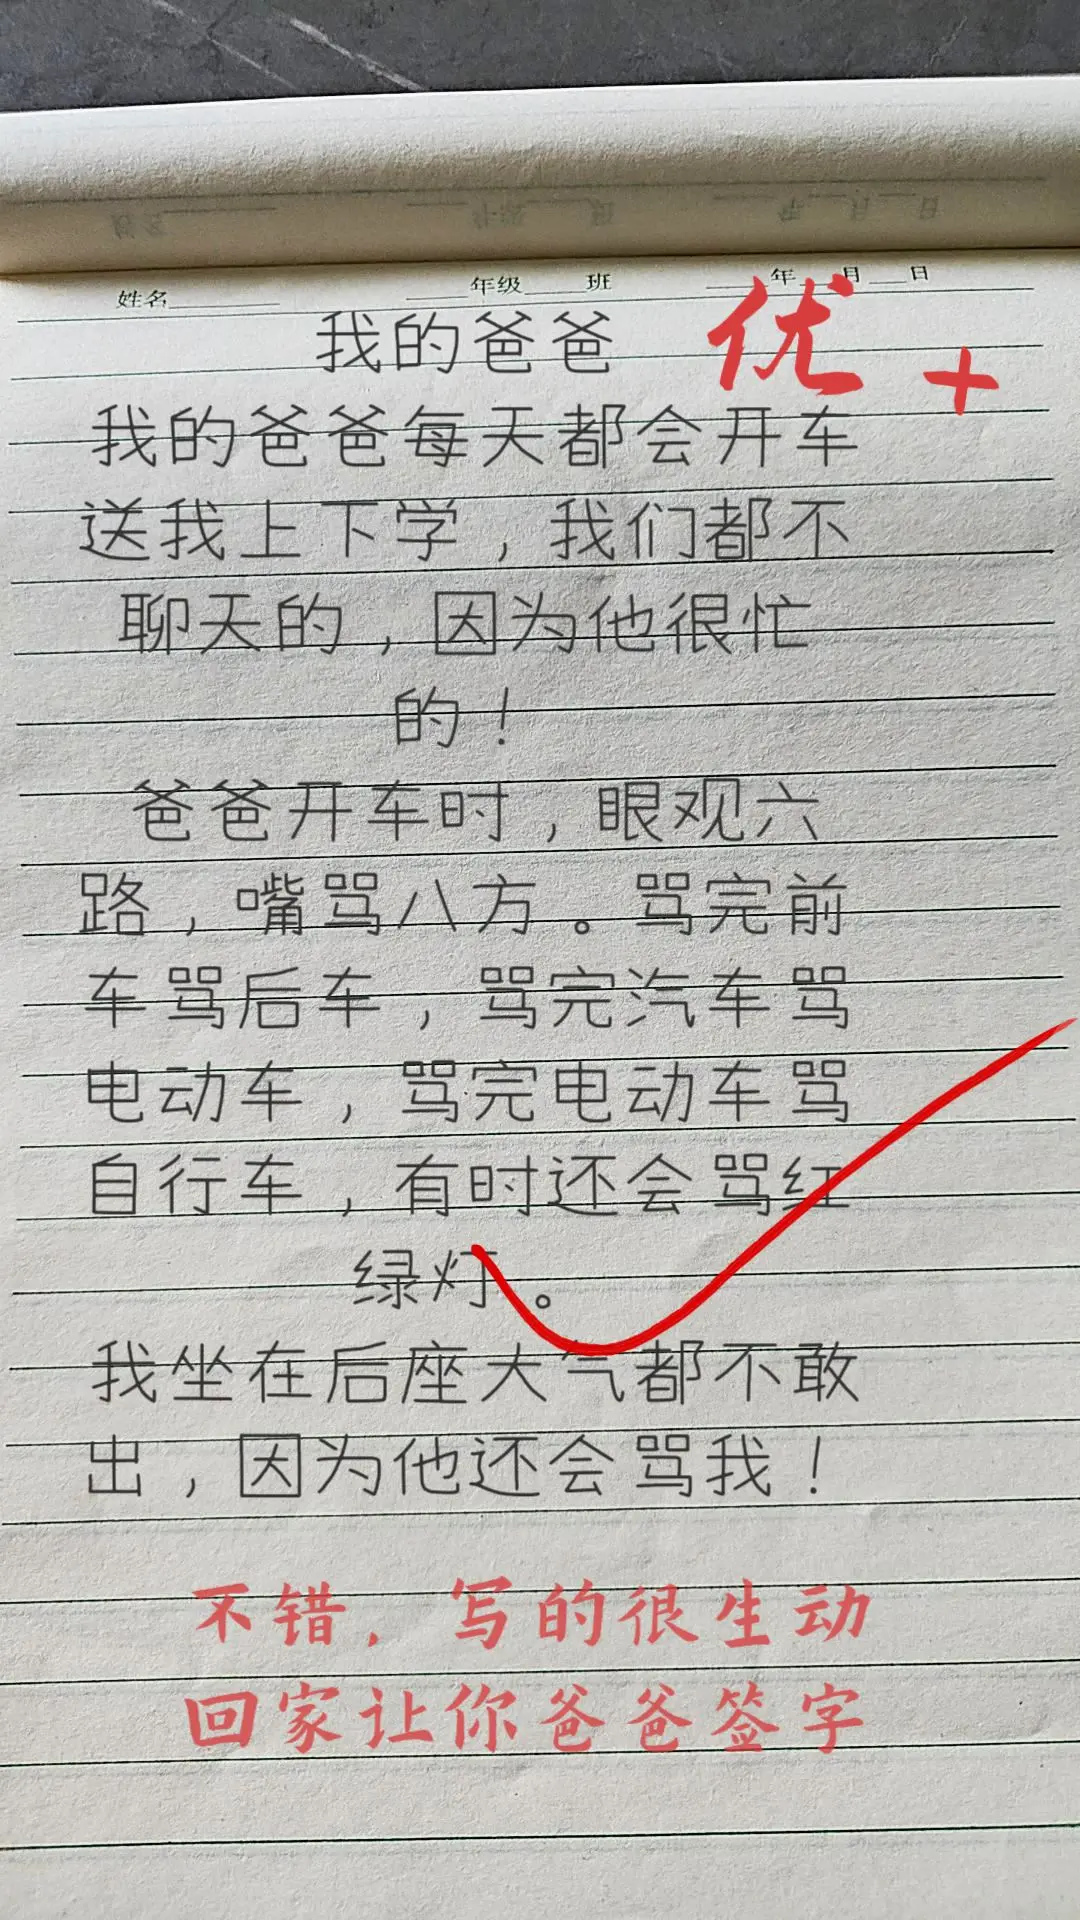 姓名______ ____年级____班 ____年__月__日
我的爸爸 优+
我的爸爸每天都会开车
送我上下学，我们都不
聊天的，因为他很忙
的！
爸爸开车时，眼观六
路，嘴骂八方。骂完前
车骂后车，骂完汽车骂
电动车，骂完电动车骂
自行车，有时还会骂红
绿灯。
我坐在后座大气都不敢
出，因为他还会骂我！
不错，写的很生动
回家让你爸爸签字